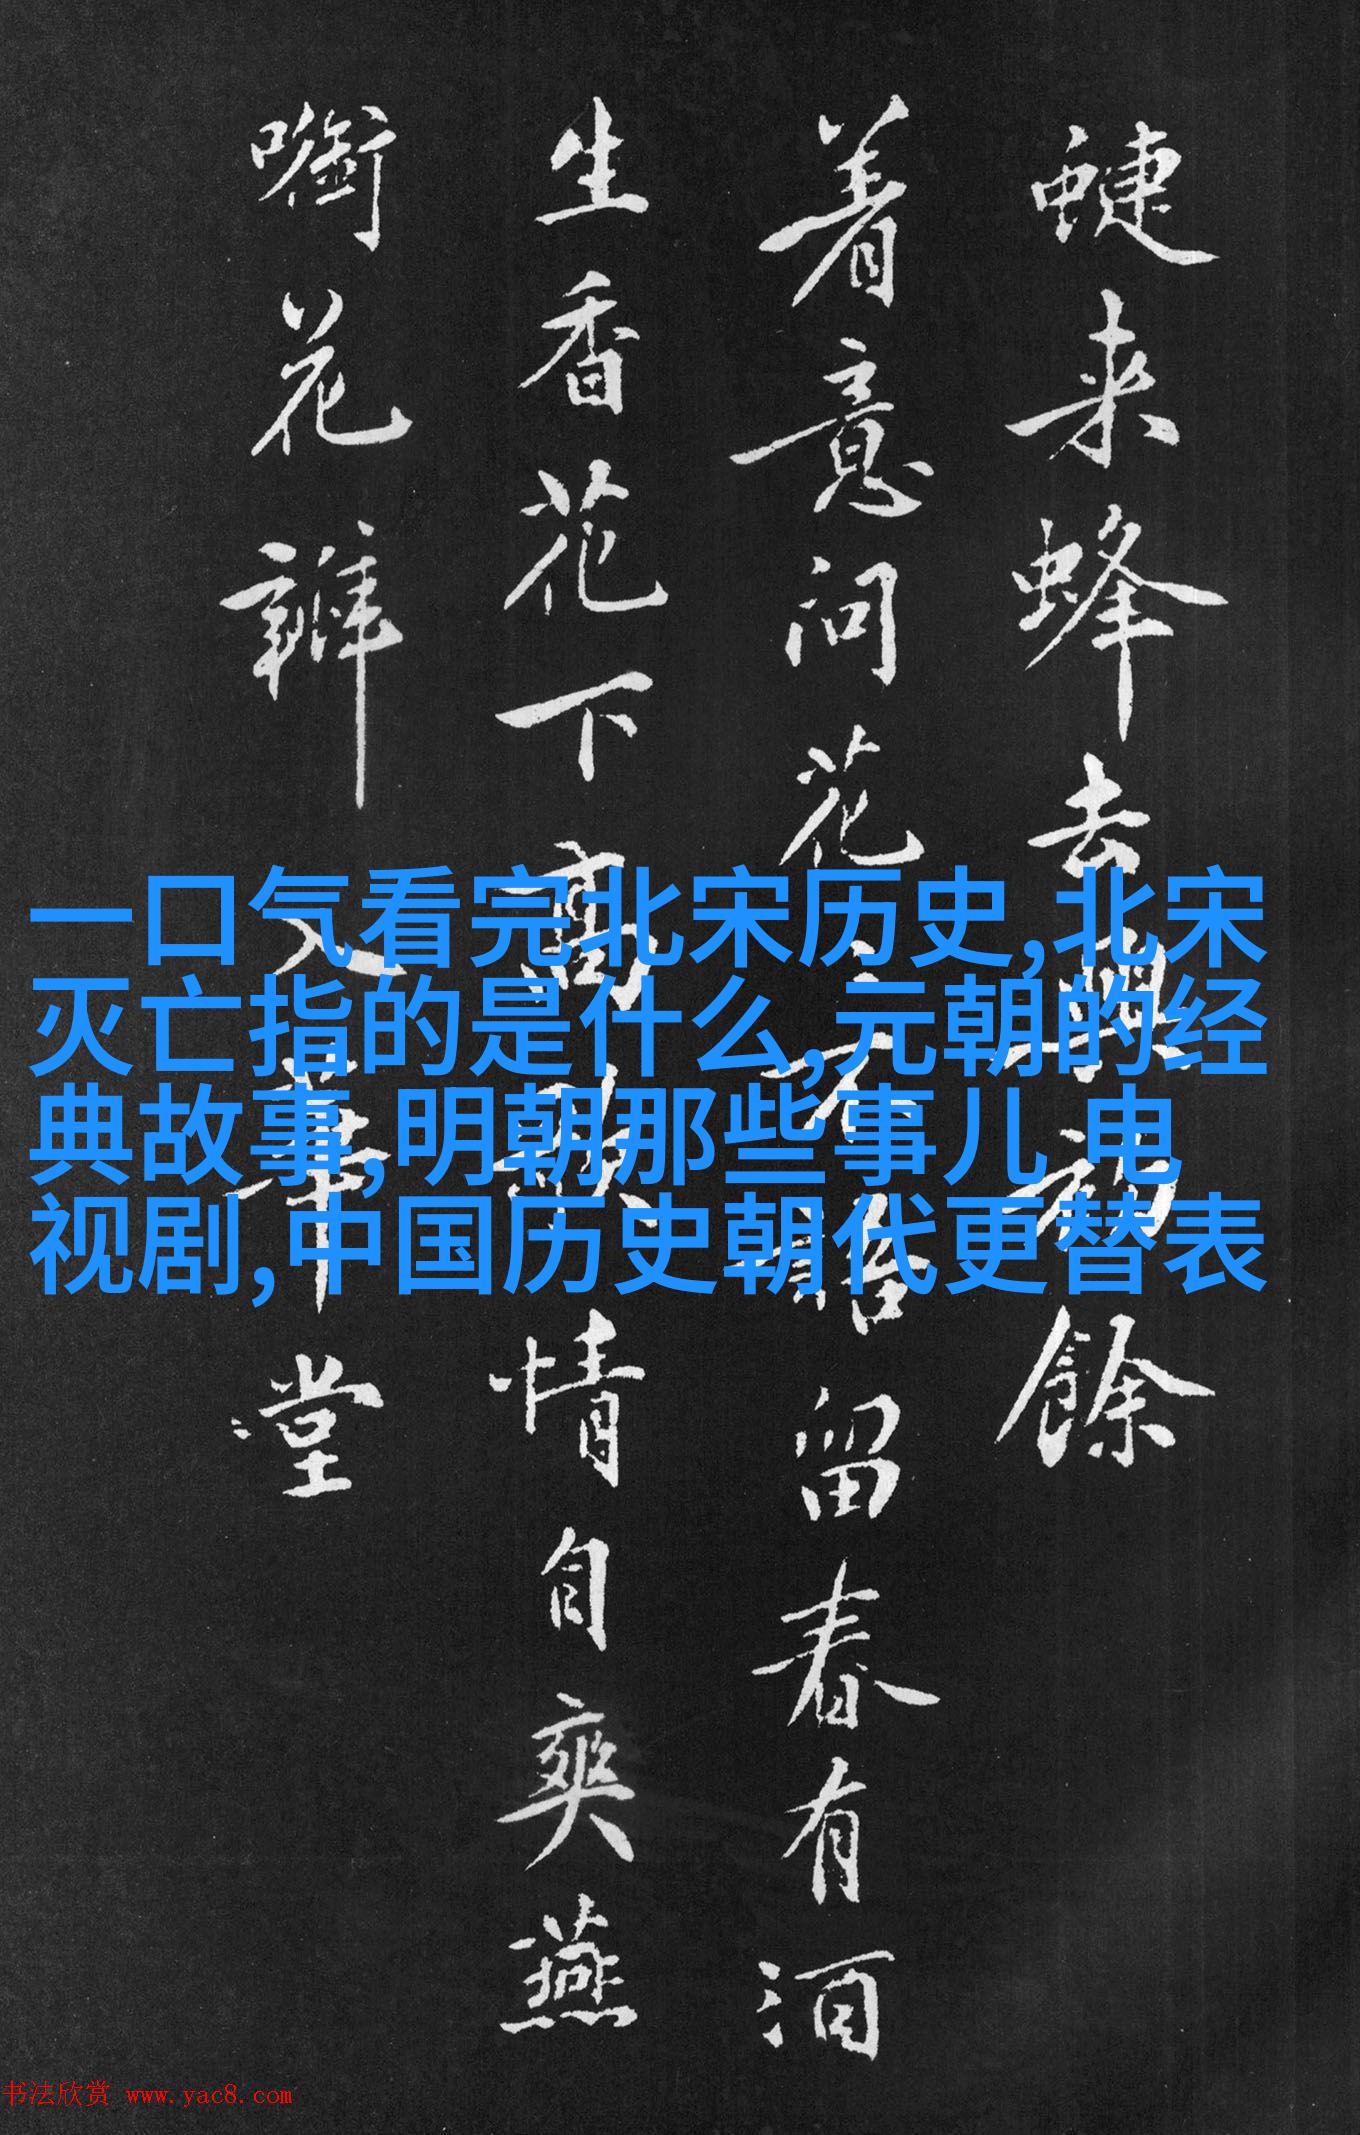 蜨来蜂去興初餘
着意问花〻不語留春有酒
生香花下高歌情自爽燕
花瓣入華堂
一口气看完北宋历史,北宋
灭亡指的是什么,元朝的经
典故事,明朝那些事儿 电
视剧,中国历史朝代更替表
书法欣赏 www.yac8.com